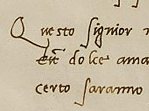 Questo signior
dolce ama
certo saranno